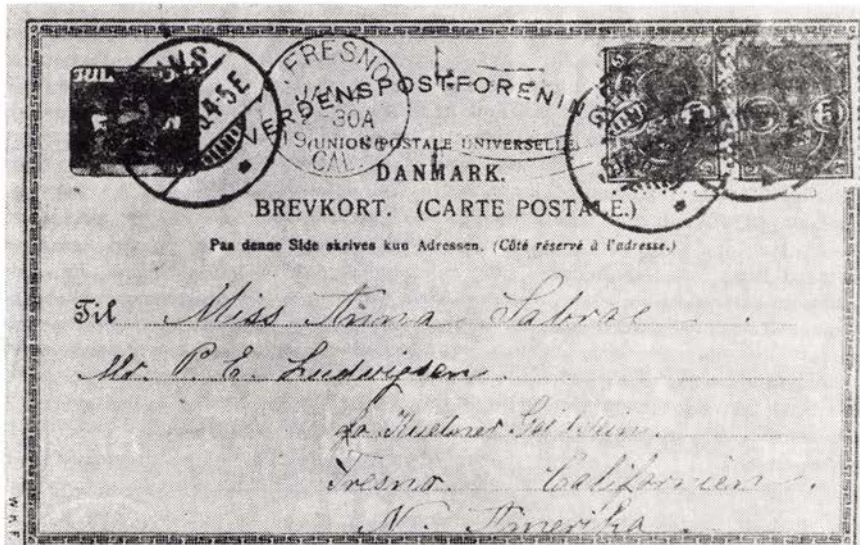 JUL
FRESNO
30A
CAL.
VERDENSPOSTFORENING
(UNION POSTALE UNIVERSELLE)
DANMARK.
BREVKORT. (CARTE POSTALE.)
Paa denne Side skrives kun Adressen. (Côté réservé à l'adresse.)
Til Miss Anna Sabroe
Mr. P. E. Ludvigsen.
Fresno Californien.
N. Amerika.